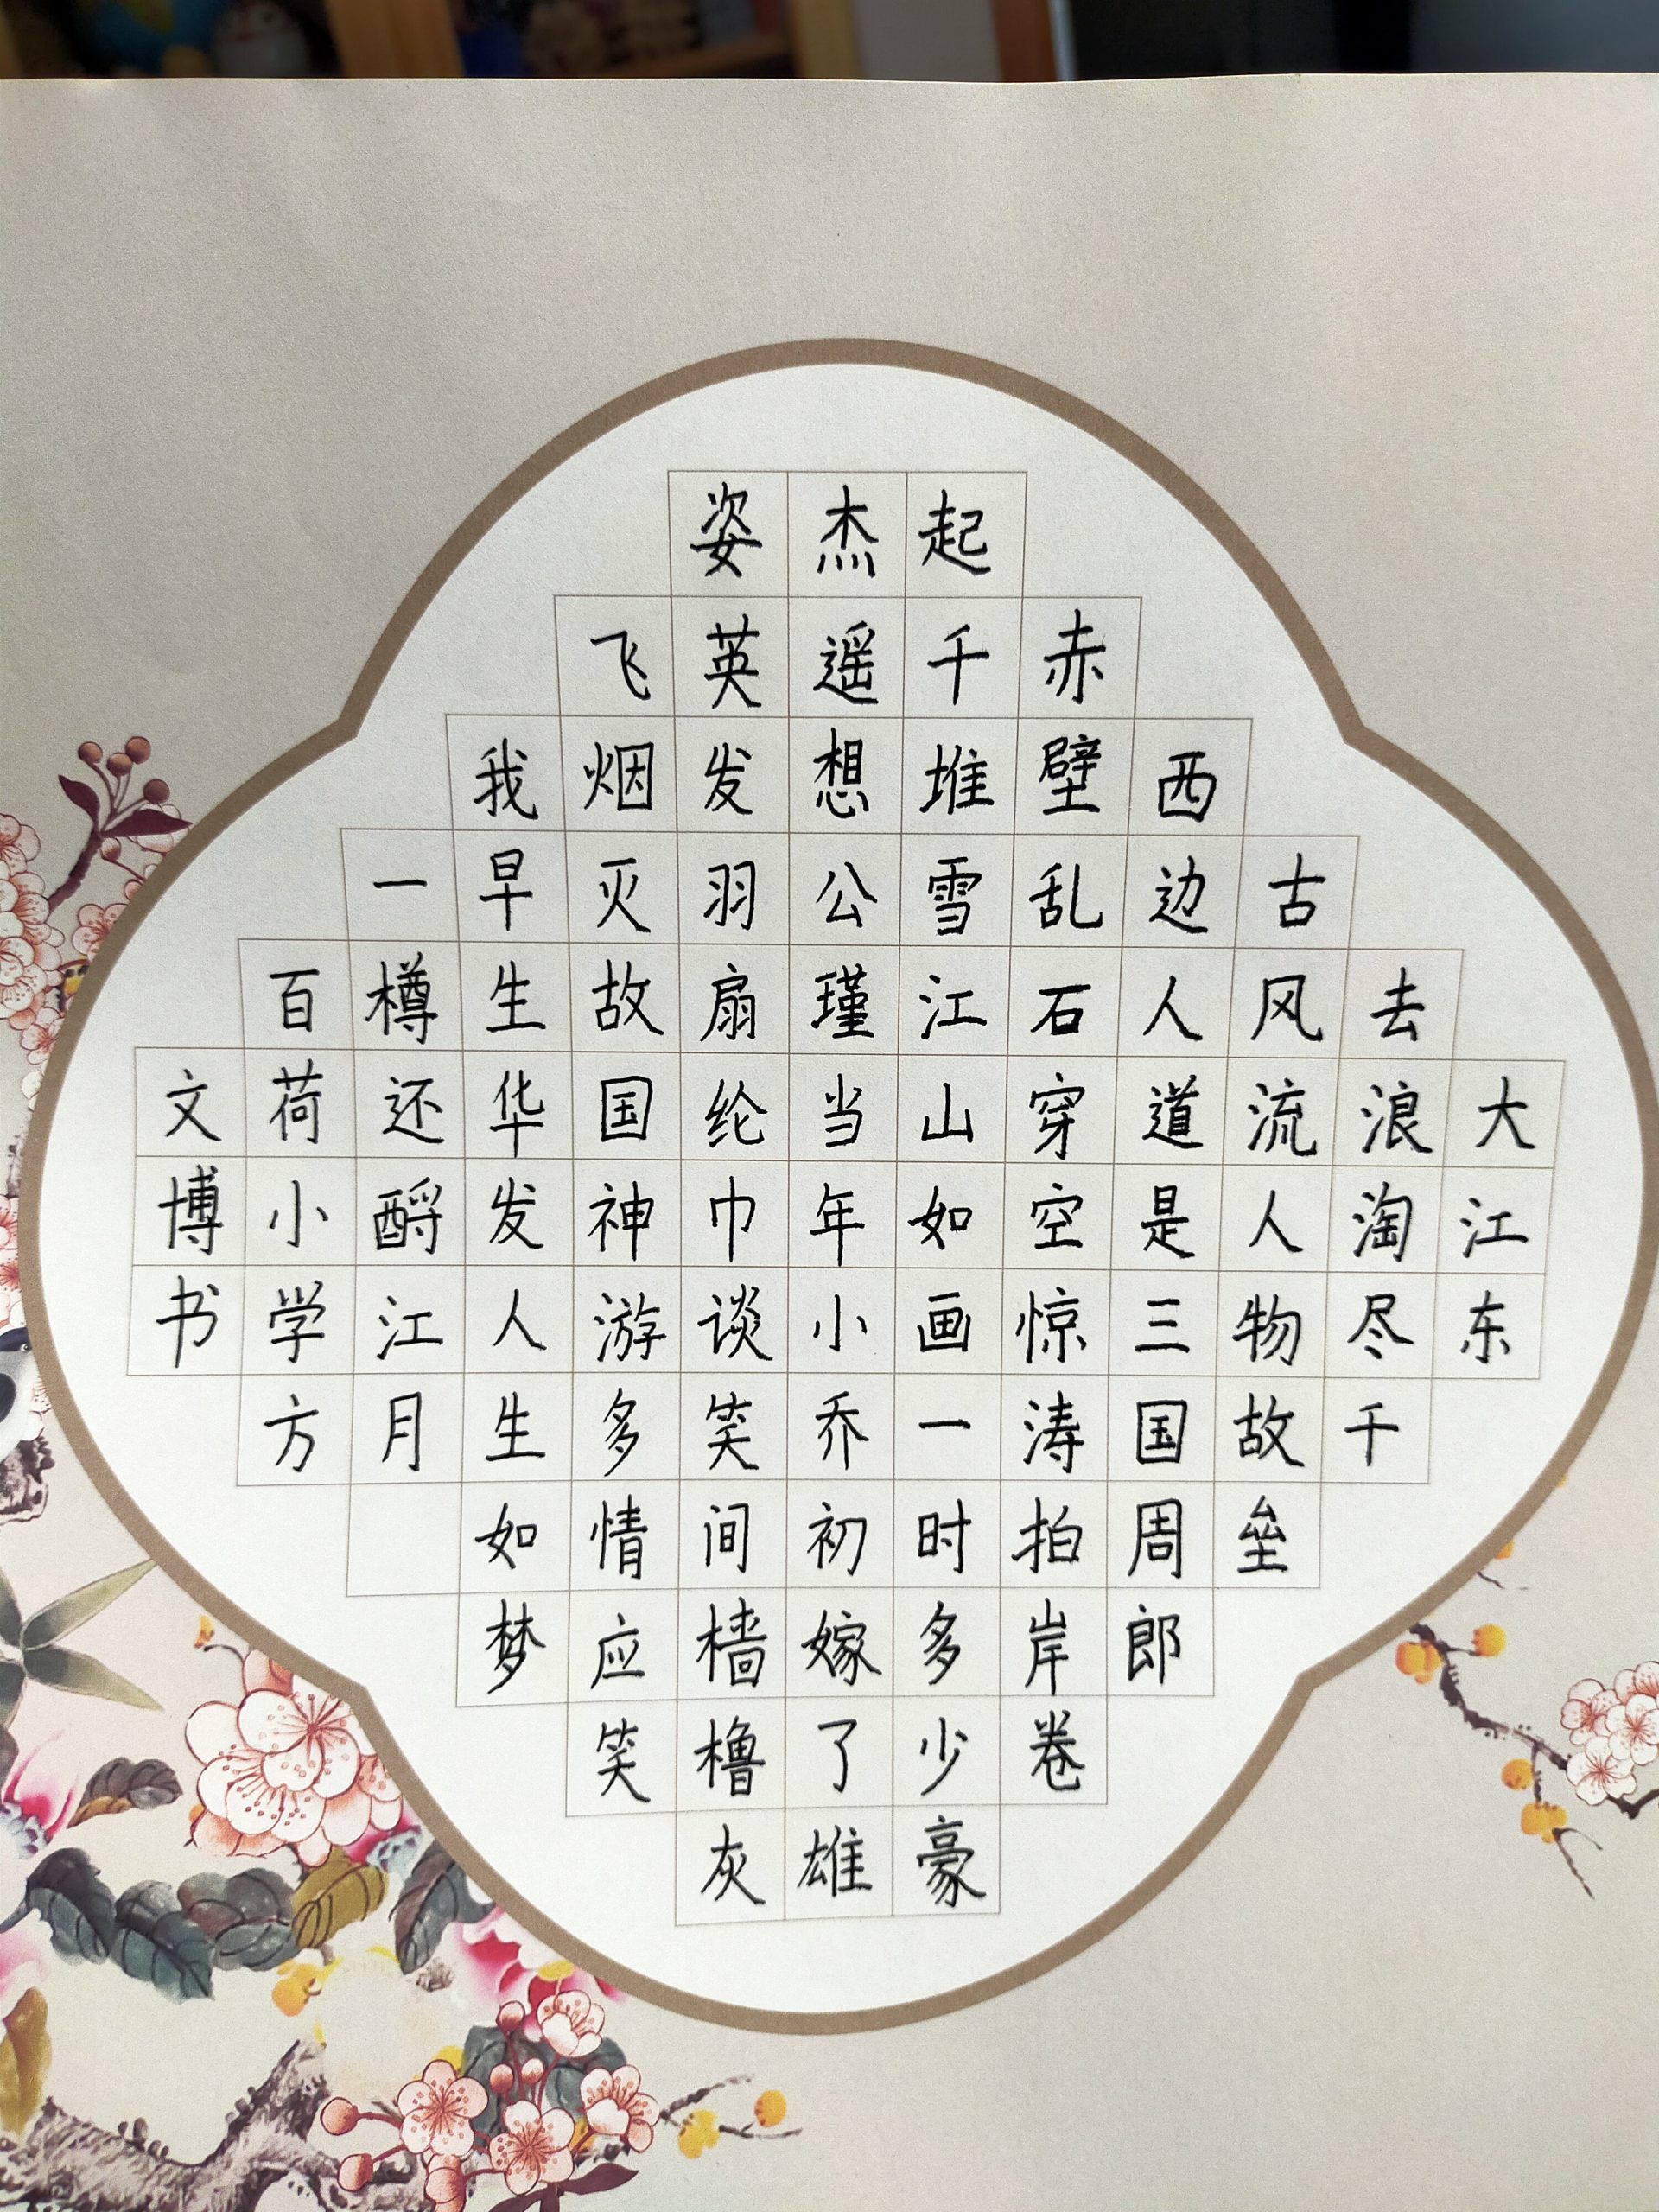 大江东
去浪淘尽千
古风流人物故垒
西边人道是三国周郎
赤壁乱石穿空惊涛拍岸卷
起千堆雪江山如画一时多少豪
杰遥想公瑾当年小乔初嫁了雄
姿英发羽扇纶巾谈笑间樯橹灰
飞烟灭故国神游多情应笑
我早生华发人生如梦
一樽还酹江月
百荷小学方
文博书